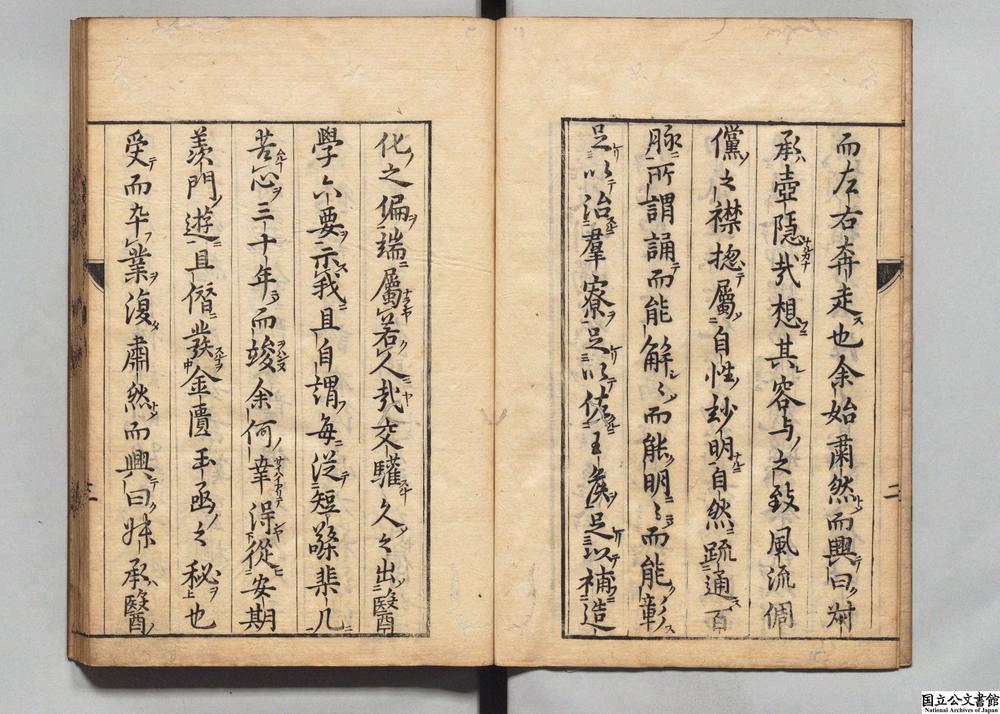 而左右奔走也余始肅然而興曰対
承壺隠哉想其容与之致風流倜
儻之襟揔属自性玅明自然疏通百
脉所謂誦而能解〻而能明〻而能彰
足以治羣寮足以佐王侯足以補造
二
化之偏端屬若人哉交驩久之出醫
學六要示我且自謂毎従短檠棐几
苦心三十年而竣余何幸得從安期
羨門遊且僭發金匱玉函之秘也
受而卒業復肅然而興曰妹承醫
三
国立公文書館
National Archives of Japan